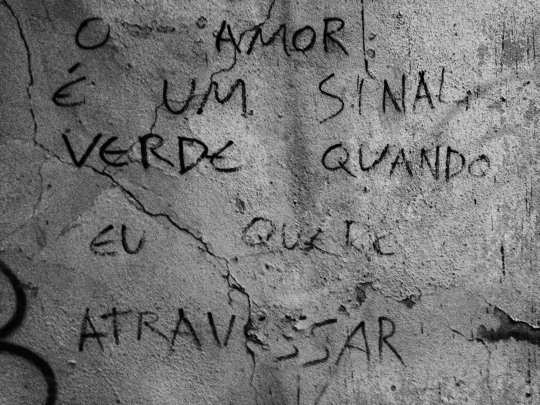 O AMOR
É UM SINAL
VERDE QUANDO
EU QUERO
ATRAVESSAR